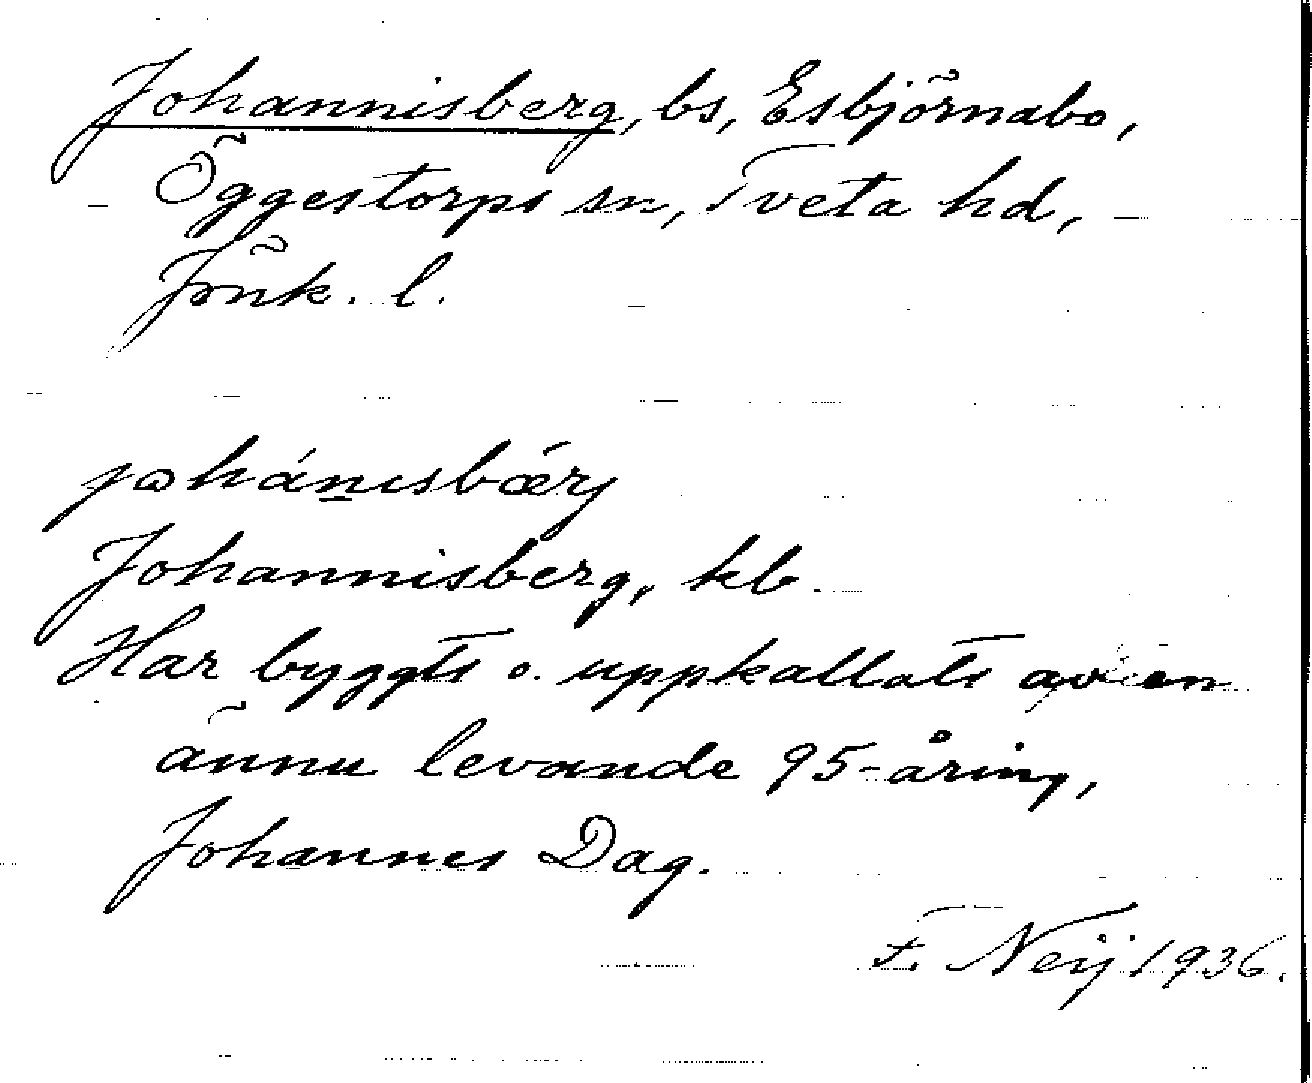 Johannisberg, bs, Esbjörnabo,
Öggestorps sn, Tveta hd,
Jönk. l.
johánisbǽrj
Johannisberg, kb.
Har byggts o. uppkallats av en
ännu levande 95-åring,
Johannes Dag.
F. Neij 1936.